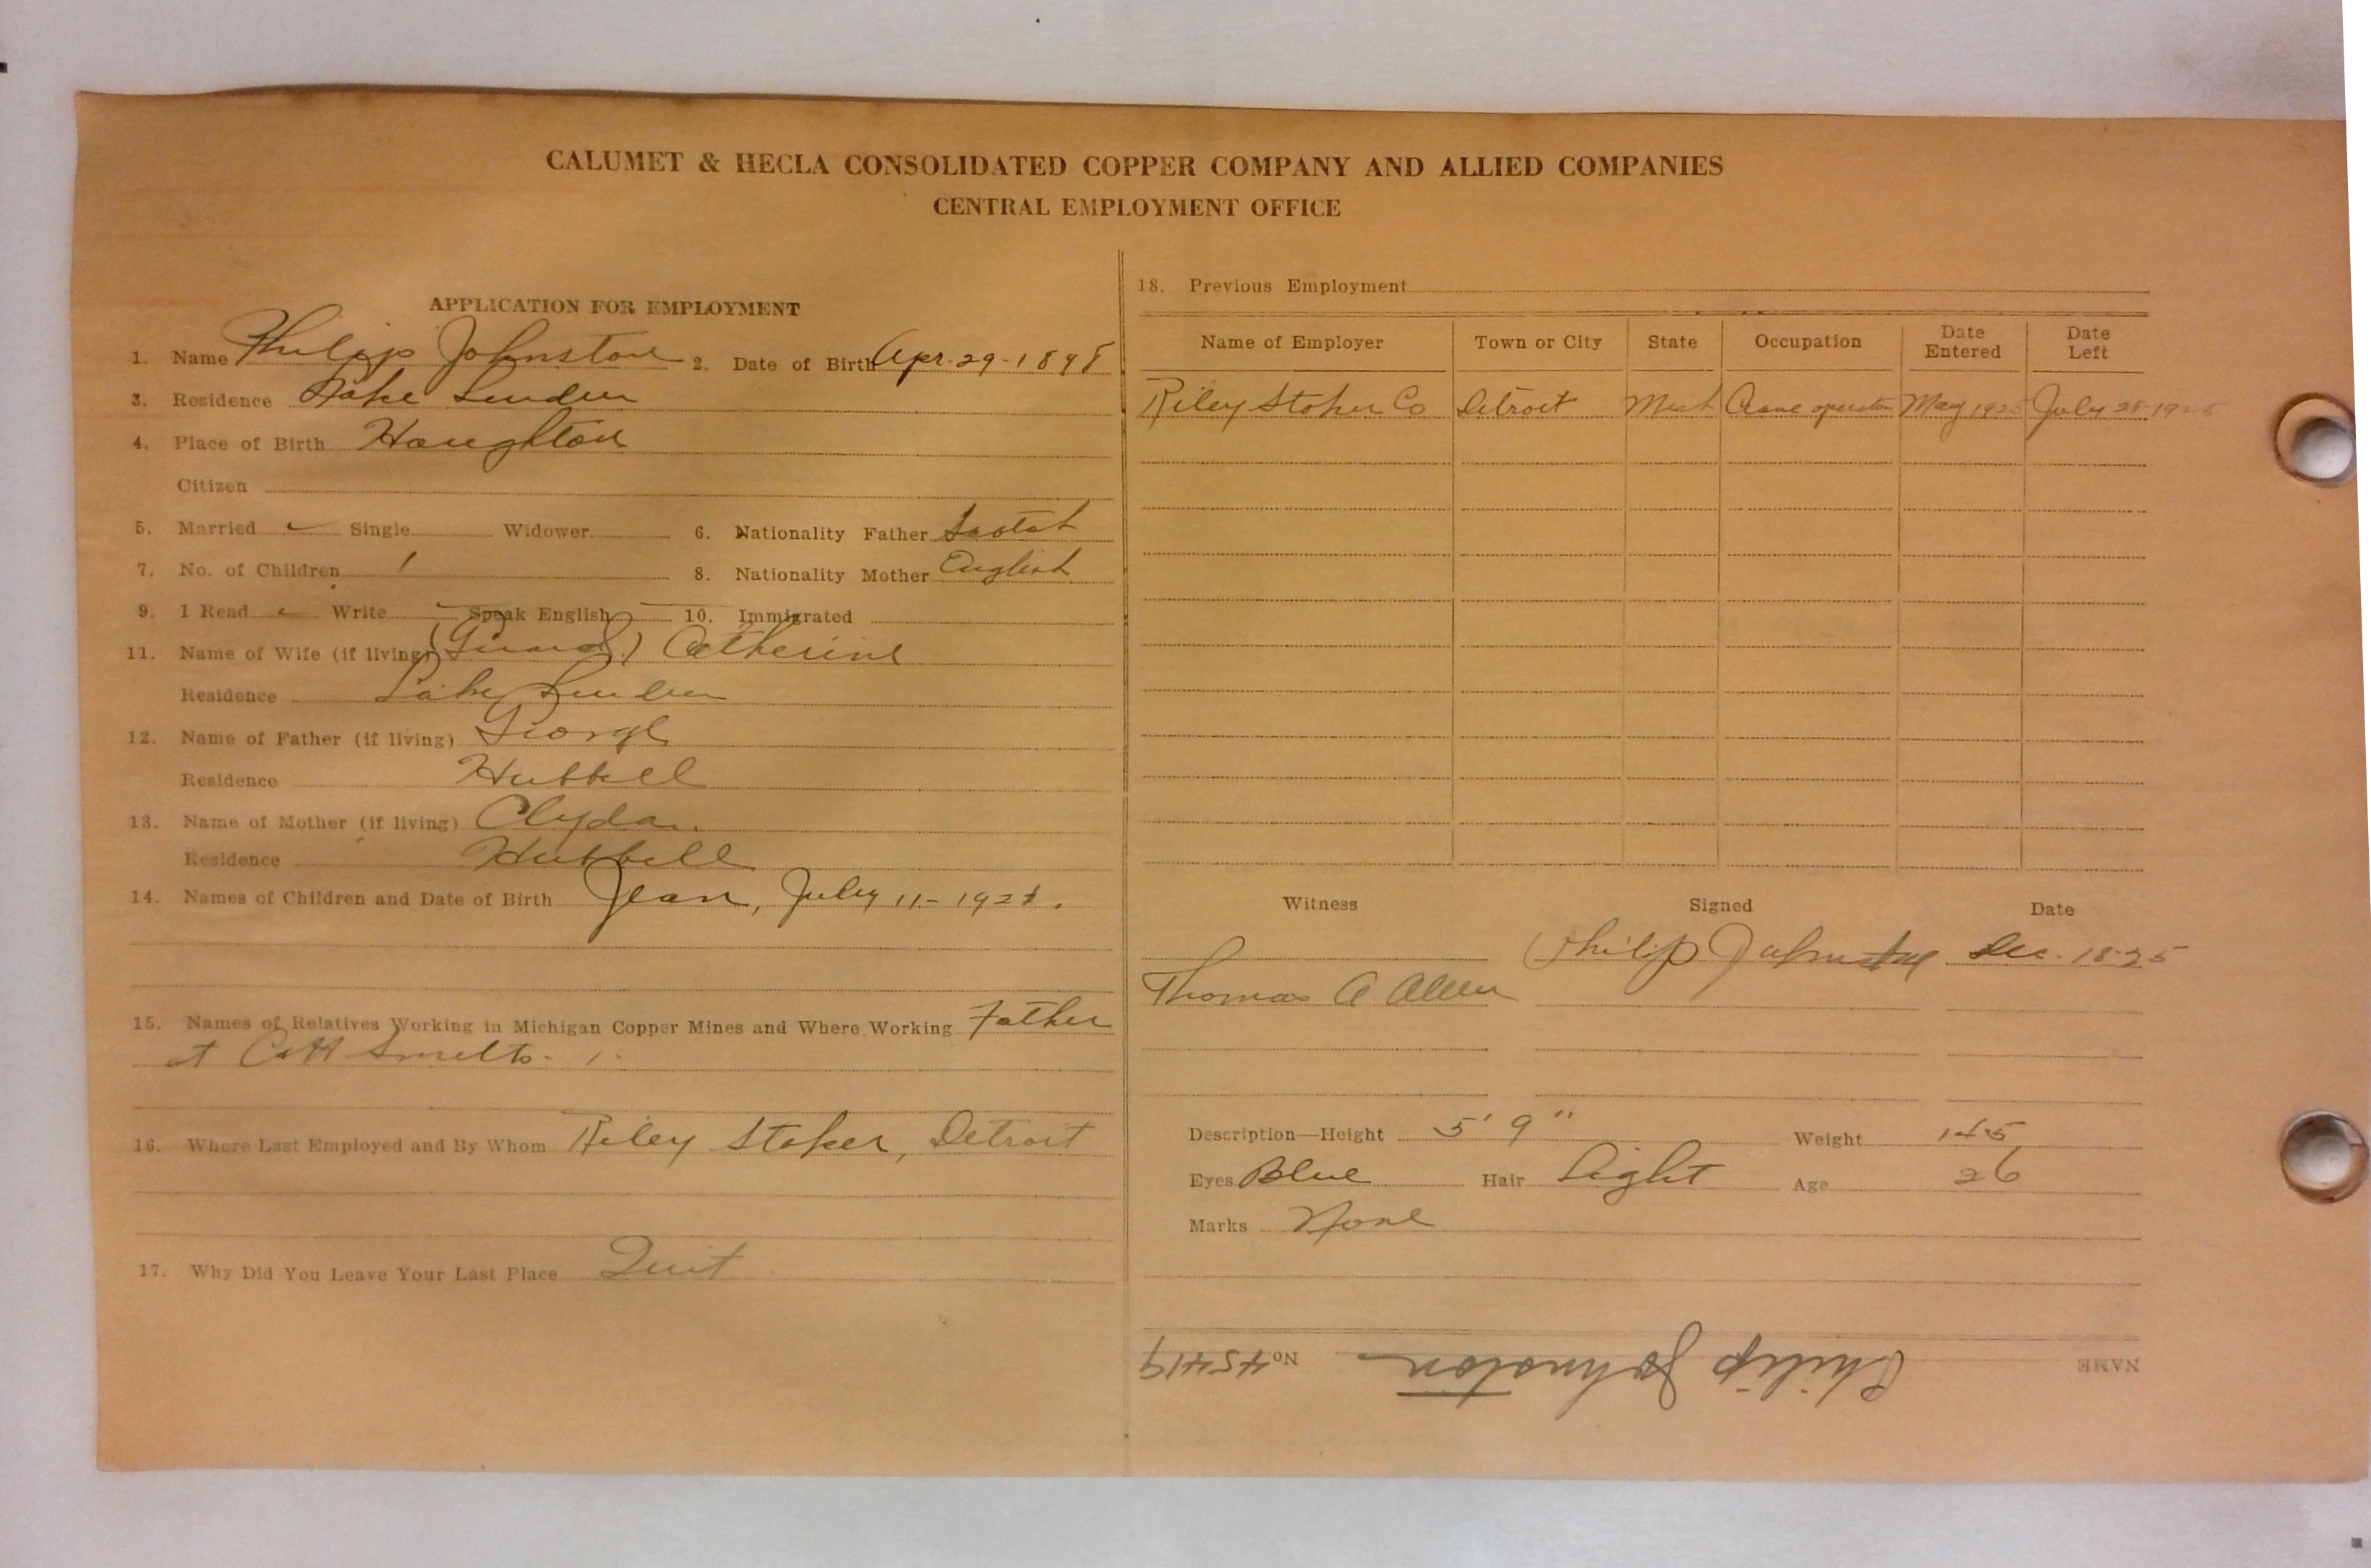 CALUMET & HECLA CONSOLIDATED COPPER COMPANY AND ALLIED COMPANIES
CENTRAL EMPLOYMENT OFFICE
APPLICATION FOR EMPLOYMENT
1. Name Philip Johnston 2. Date of Birth Apr. 29-1898
3. Residence Lake Linden
4. Place of Birth Houghton
Citizen
5. Married ✓ Single Widower 6. Nationality Father Scotch
7. No. of Children 1 8. Nationality Mother English
9. I Read ✓ Write ✓ Speak English ✓ 10. Immigrated
11. Name of Wife (if living) Catherine
Residence Lake Linden
12. Name of Father (if living) George
Residence Hubbell
13. Name of Mother (if living) Clyda
Residence Hubbell
14. Names of Children and Date of Birth Jean, July 11-
15. Names of Relatives Working in Michigan Copper Mines and Where Working Father
at C&H Smelts.
16. Where Last Employed and By Whom Riley Stoker, Detroit
17. Why Did You Leave Your Last Place Quit
18. Previous Employment
Name of Employer Town or City State Occupation Date Entered Date Left
Riley Stoker Co Detroit Mich Crane operator May July
Witness Signed Date
Philip Johnston Dec. 18-25
Thomas A Allen
Description—Height 5' 9" Weight 145
Eyes Blue Hair Light Age 26
Marks None
NAME Philip Johnston No 45419